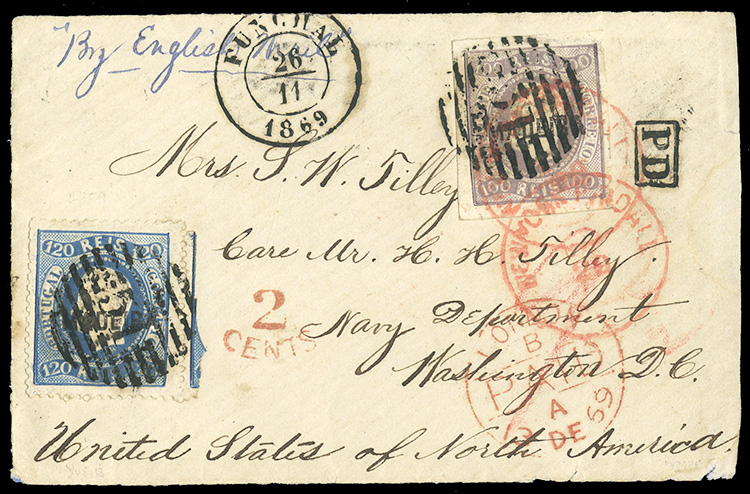 "By English Mail"
FUNCHAL
26
11
1869
100 100
CORREIO
100 REIS 100
PD
Mrs. S. W. Tilley
Care Mr. H. H. Tilley.
Navy Department
Washington D.C.
United States of North America.
120 REIS 120
PORTUGAL
120
2
CENTS
NEW
PAID
B
A
DE 69